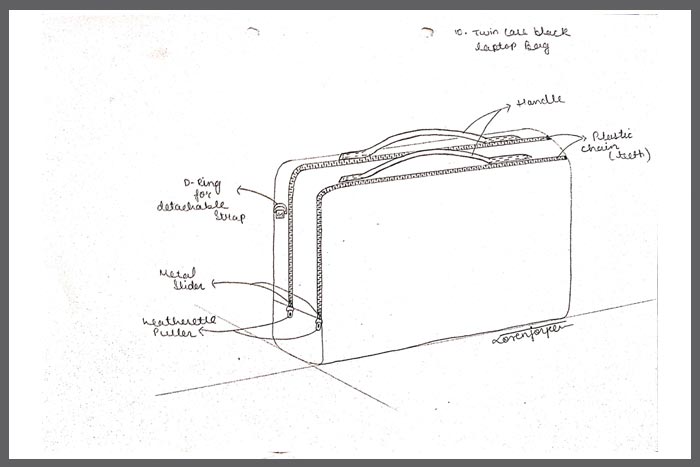 10. Twin Case black
Laptop Bag
Handle
Plastic
chain
(teeth)
D-Ring
for
detachable
Strap
Metal
Slider
Leatherette
Puller